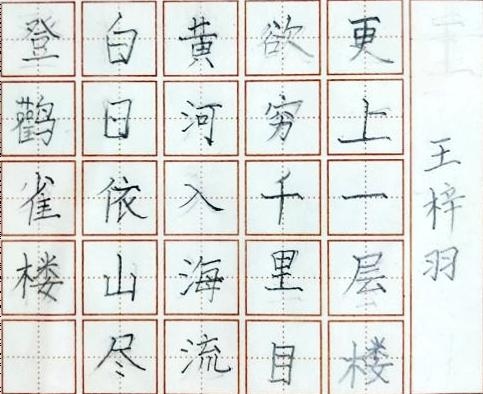 登鹳雀楼
白日依山尽
黄河入海流
欲穷千里目
更上一层楼
王梓羽